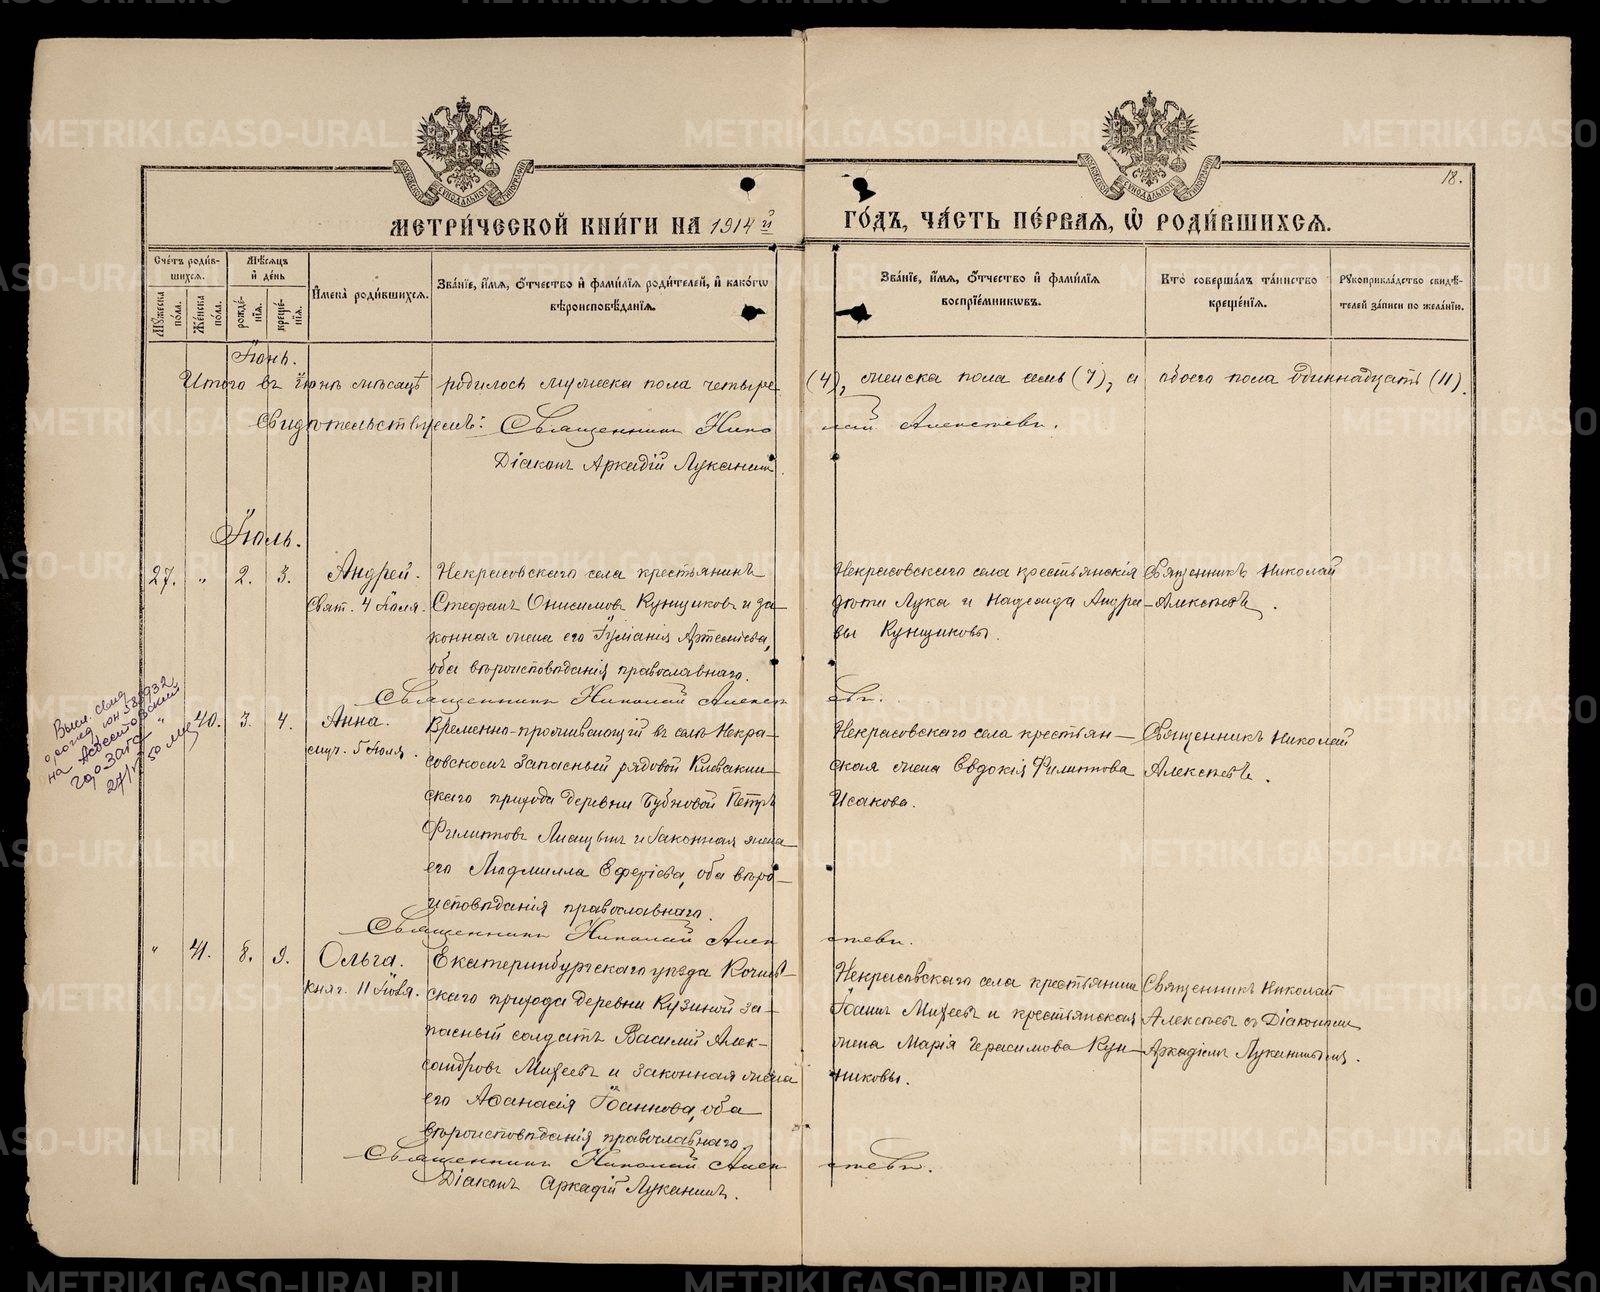 МЕТРИЧЕСКОЙ КНИГИ НА 1914 й ГОДЪ, ЧАСТЬ ПЕРВАЯ, Ѿ РОДИВШИХСЯ.
18.
Счетъ родившихся.
Мужеска пола.
Женска пола.
Мѣсяцъ и день
рожденія.
крещенія.
Имена родившихся.
Званіе, имя, отчество и фамилія родителей, и какогѡ вѣроисповѣданія.
Званіе, имя, отчество и фамилія воспріемникѡвъ.
Кто совершалъ таинство крещенія.
Рукоприкладство свидѣтелей записи по желанію.
Іюнь.
Итого въ Іюнѣ мѣсяцѣ родилось мужеска пола четыре (4), женска пола семь (7), а обоего пола одиннадцать (11).
Свидѣтельствуемъ: Священникъ Николай Алексѣевъ.
Діаконъ Аркадій Луканинъ.
Іюль.
27. „ 2. 3.
Андрей.
Свят. 4 Іюля.
Некрасовскаго села крестьянинъ
Стефанъ Онисимовъ Кунщиковъ и за-
конная жена его Іуліанія Артеміева,
оба вѣроисповѣданія православнаго.
Некрасовскаго села крестьянскія
дѣти Лука и Надежда Андре-
вы Кунщиковы.
Священникъ Николай
Алексѣевъ.
Священникъ Николай Алексѣевъ.
40. 3. 4.
Анна.
муч. 5 Іюля.
Временно-проживающій въ селѣ Некра-
совскомъ запасный рядовой
скаго прихода деревни Бубновой Петръ
Филипповъ и законная жена
его Людмилла оба вѣро-
исповѣданія православнаго.
Некрасовскаго села крестьян-
ская жена Евдокія Филиппова
Исакова.
Священникъ Николай
Алексѣевъ.
Священникъ Николай Алексѣевъ.
„ 41. 8. 9.
Ольга.
княг. 11 Іюля.
Екатеринбургскаго уѣзда Кочнев-
скаго прихода деревни Кузиной за-
пасный солдатъ Василій Алек-
сандровъ Михеевъ и законная жена
его Аѳанасія Іоаннова, оба
вѣроисповѣданія православнаго.
Некрасовскаго села крестьянинъ
Іоаннъ Михеевъ и крестьянская
жена Марія Герасимова Кун-
никовы.
Священникъ Николай
Алексѣевъ съ Діакономъ
Аркадіемъ Луканинымъ.
Священникъ Николай Алексѣевъ.
Діаконъ Аркадій Луканинъ.
METRIKI.GASO-URAL.RU